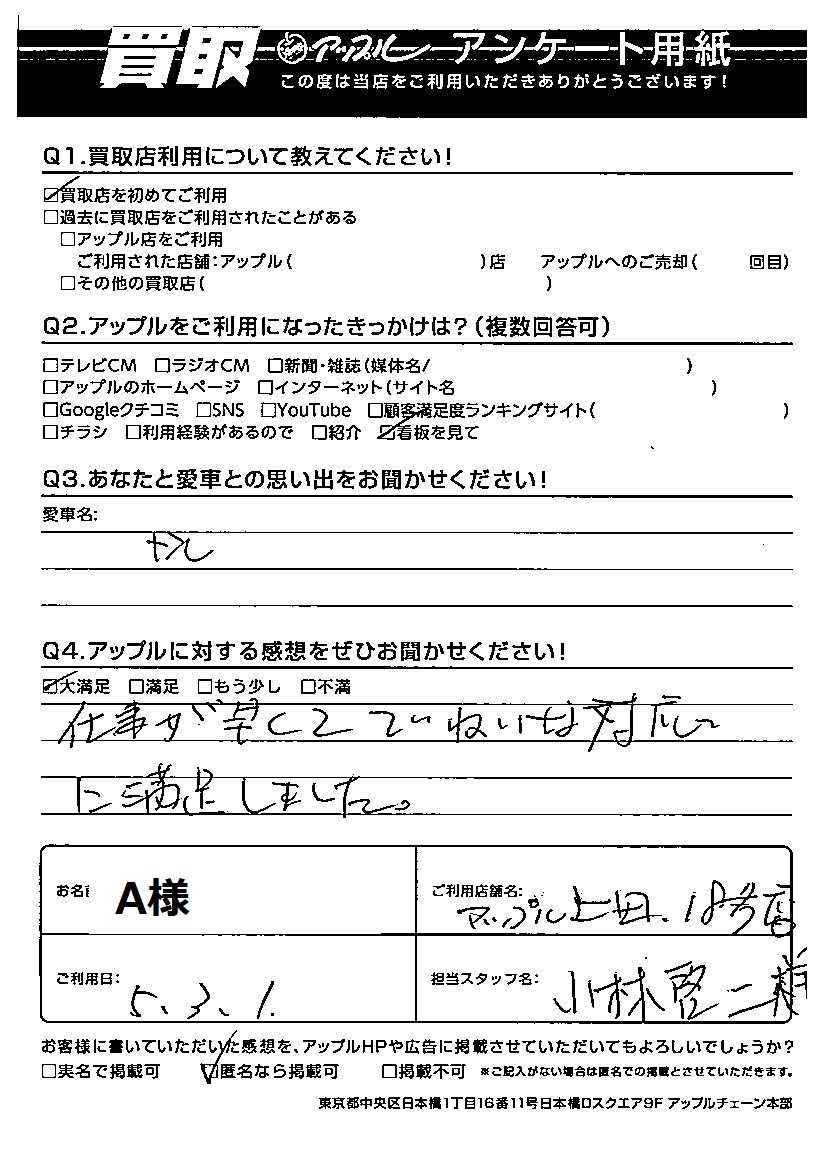 買取 アップル アンケート用紙
この度は当店をご利用いただきありがとうございます!
Q1.買取店利用について教えてください!
☑買取店を初めてご利用
□過去に買取店をご利用されたことがある
□アップル店をご利用
ご利用された店舗:アップル( )店 アップルへのご売却( 回目)
□その他の買取店( )
Q2.アップルをご利用になったきっかけは?(複数回答可)
□テレビCM □ラジオCM □新聞・雑誌(媒体名/ )
□アップルのホームページ □インターネット(サイト名 )
□Googleクチコミ □SNS □YouTube □顧客満足度ランキングサイト( )
□チラシ □利用経験があるので □紹介 ☑看板を見て
Q3.あなたと愛車との思い出をお聞かせください!
愛車名:
Q4.アップルに対する感想をぜひお聞かせください!
☑大満足 □満足 □もう少し □不満
仕事が早くて ていねいな対応
に満足しました。
お名前 A様 ご利用店舗名: アップル上田、18号店
ご利用日: 5.3.1. 担当スタッフ名: 小林啓二様
お客様に書いていただいた感想を、アップルHPや広告に掲載させていただいてもよろしいでしょうか?
□実名で掲載可 ☑匿名なら掲載可 □掲載不可 ※ご記入がない場合は匿名での掲載とさせていただきます。
東京都中央区日本橋1丁目16番11号日本橋Dスクエア9F アップルチェーン本部